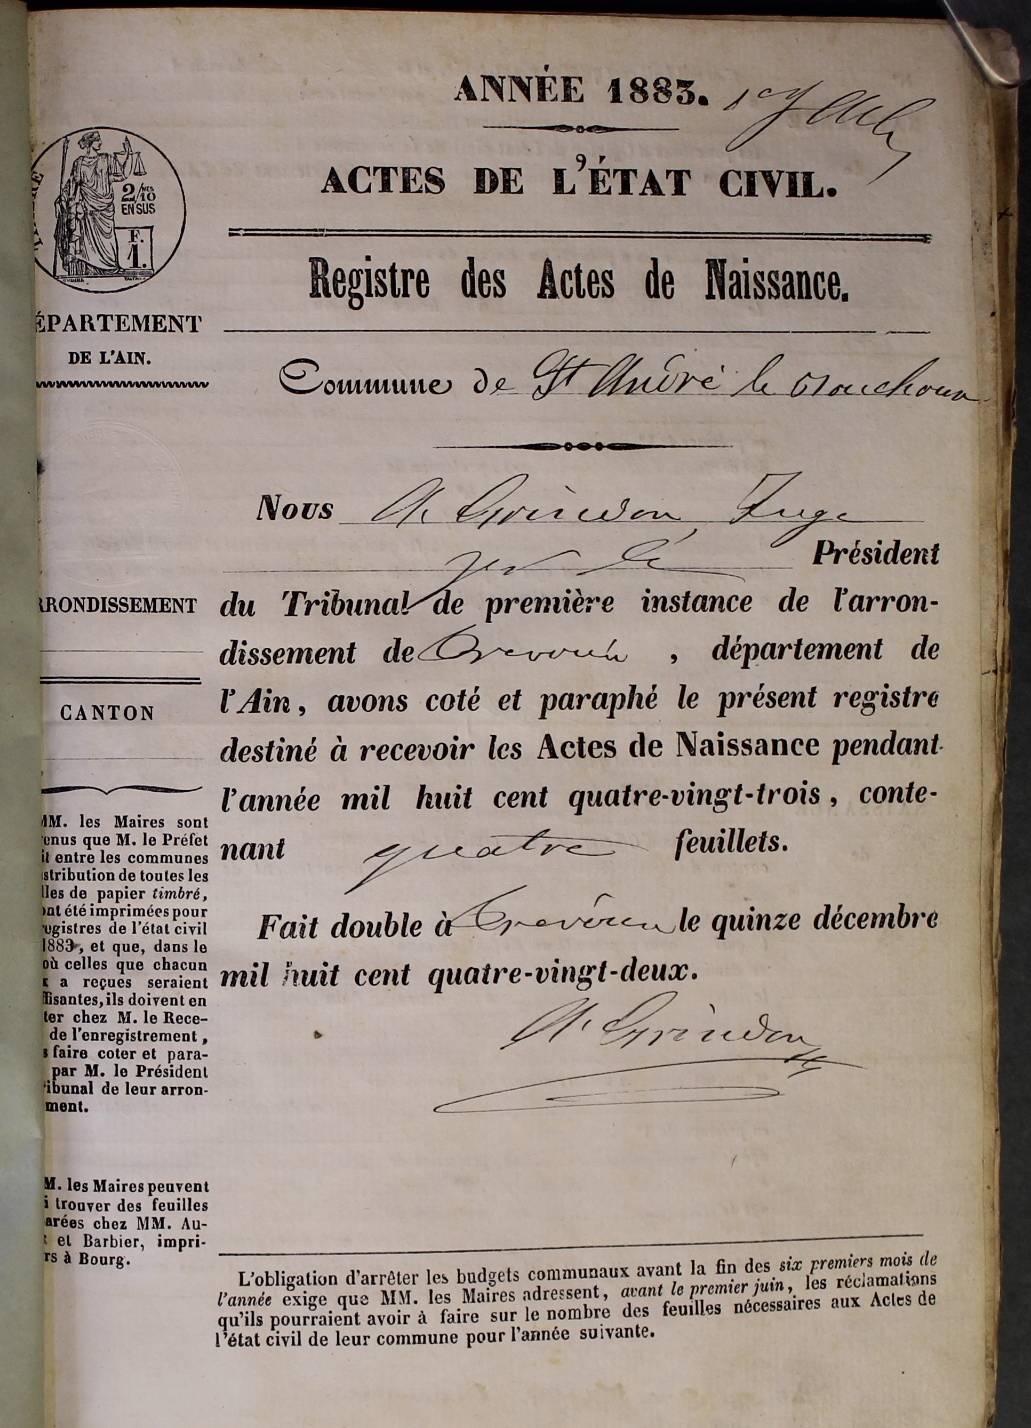 ANNÉE 1883.
ACTES DE L'ÉTAT CIVIL.
2/10
EN SUS
F.
1.
Registre des Actes de Naissance.
ÉPARTEMENT
DE L'AIN.
Commune de St André le Bouchoux
Nous A. Grindon, Juge
pr le Président
RRONDISSEMENT
du Tribunal de première instance de l'arron-
dissement de Trevoux, département de
CANTON
l'Ain, avons coté et paraphé le présent registre
destiné à recevoir les Actes de Naissance pendant
l'année mil huit cent quatre-vingt-trois, conte-
nant quatre feuillets.
Fait double à Trevoux le quinze décembre
mil huit cent quatre-vingt-deux.
A. Grindon
MM. les Maires sont
enus que M. le Préfet
it entre les communes
stribution de toutes les
lles de papier timbré,
ont été imprimées pour
egistres de l'état civil
1883, et que, dans le
où celles que chacun
x a reçues seraient
ffisantes, ils doivent en
ter chez M. le Rece-
de l'enregistrement,
s faire coter et para-
par M. le Président
ribunal de leur arron-
ment.
M. les Maires peuvent
i trouver des feuilles
arées chez MM. Au-
t et Barbier, impri-
rs à Bourg.
L'obligation d'arrêter les budgets communaux avant la fin des six premiers mois de
l'année exige que MM. les Maires adressent, avant le premier juin, les réclamations
qu'ils pourraient avoir à faire sur le nombre des feuilles nécessaires aux Actes de
l'état civil de leur commune pour l'année suivante.